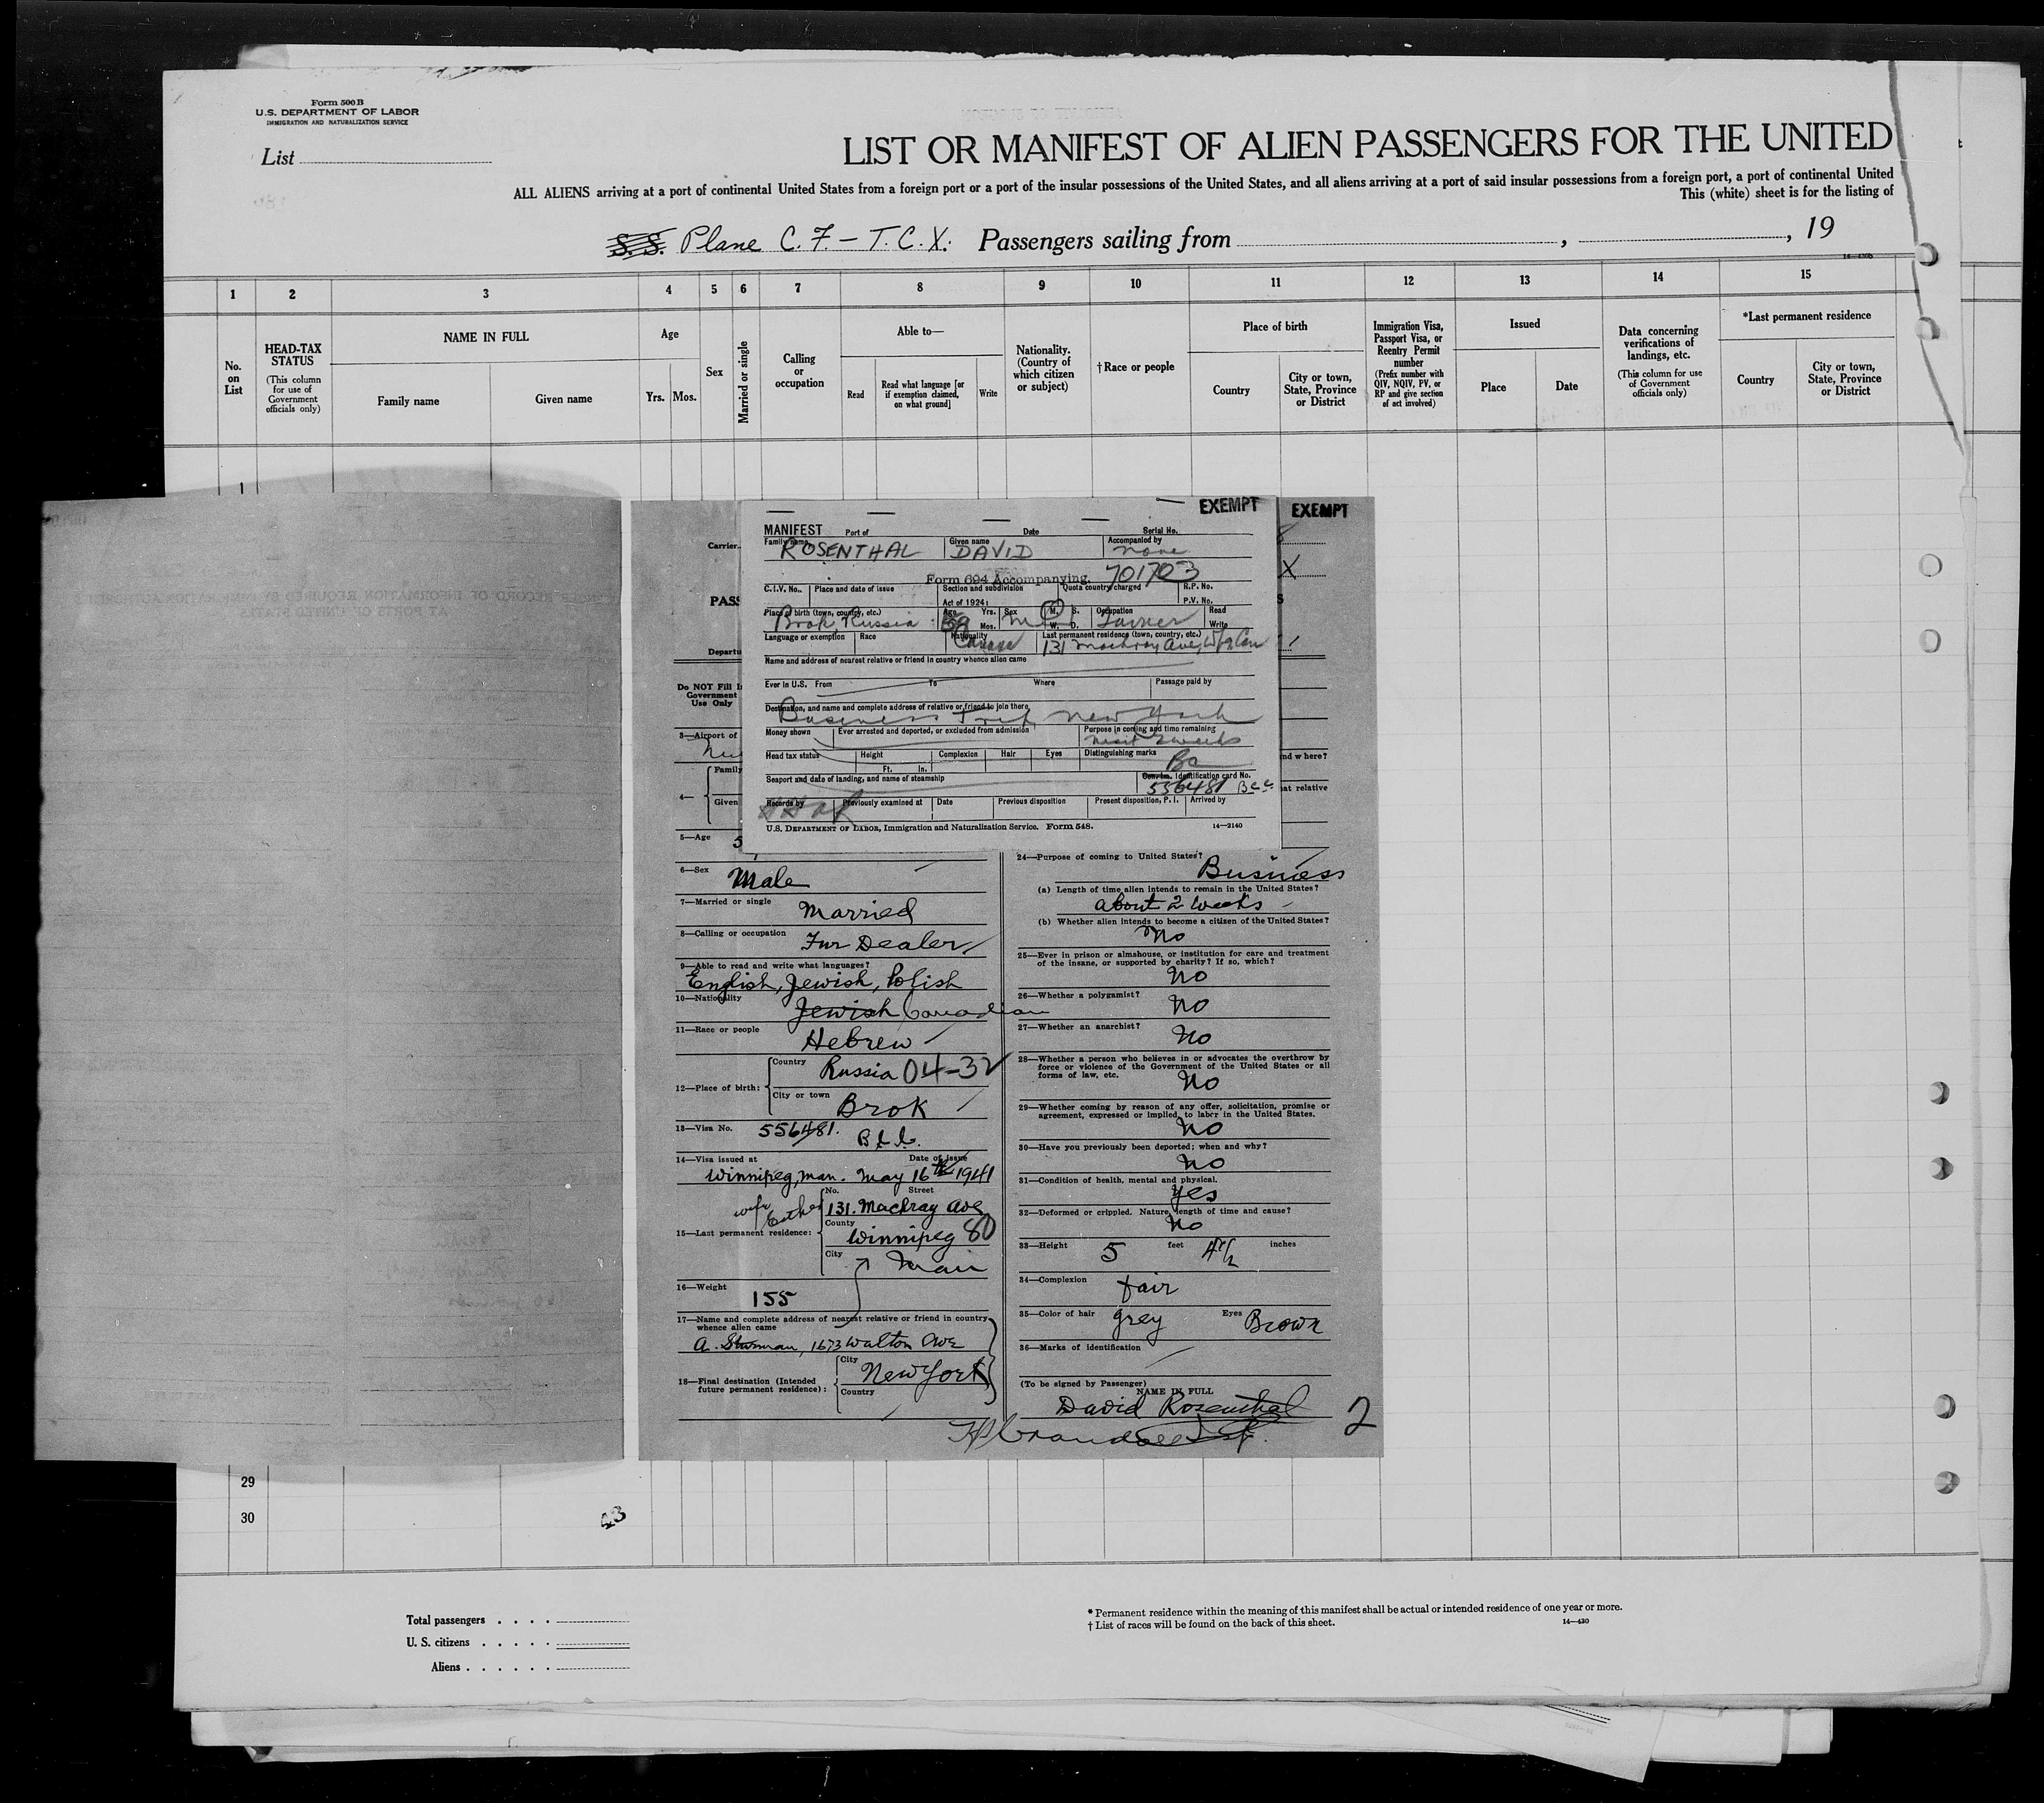 Form 500 B
U.S. DEPARTMENT OF LABOR
IMMIGRATION AND NATURALIZATION SERVICE
List
LIST OR MANIFEST OF ALIEN PASSENGERS FOR THE UNITED
ALL ALIENS arriving at a port of continental United States from a foreign port or a port of the insular possessions of the United States, and all aliens arriving at a port of said insular possessions from a foreign port, a port of continental United
This (white) sheet is for the listing of
S.S. Plane C.F.-T.C.X. Passengers sailing from , , 19
1 2 3 4 5 6 7 8 9 10 11 12 13 14 15
No. on List
HEAD-TAX STATUS
(This column for use of Government officials only)
NAME IN FULL
Family name Given name
Age
Yrs. Mos.
Sex
Married or single
Calling or occupation
Able to—
Read
Read what language [or if exemption claimed, on what ground]
Write
Nationality. (Country of which citizen or subject)
† Race or people
Place of birth
Country
City or town, State, Province or District
Immigration Visa, Passport Visa, or Reentry Permit number
(Prefix number with QIV, NQIV, PV, or RP and give section of act involved)
Issued
Place Date
Data concerning verifications of landings, etc.
(This column for use of Government officials only)
*Last permanent residence
Country
City or town, State, Province or District
1
EXEMPT
EXEMPT
MANIFEST Port of Date Serial No.
Family name ROSENTHAL Given name DAVID Accompanied by none
Form 694 Accompanying 701703
C.I.V. No. Place and date of issue Section and subdivision Quota country charged R.P. No.
Act of 1924: P.V. No.
Place of birth (town, country, etc.) Brok, Russia Age Yrs. Mos. Sex M M. S. W. D. Occupation Read Write
Language or exemption Race Nationality Canada Last permanent residence (town, country, etc.) 131 Machray Ave, Wpg Can
Name and address of nearest relative or friend in country whence alien came
Ever in U.S. From To Where Passage paid by
Destination, and name and complete address of relative or friend to join there
Business Trip, New York
Money shown Ever arrested and deported, or excluded from admission Purpose in coming and time remaining
visit 2 weeks
Head tax status Height Ft. In. Complexion Hair Eyes Distinguishing marks
Seaport and date of landing, and name of steamship Identification card No.
556481 BCC
Records by Previously examined at Date Previous disposition Present disposition, P. I. Arrived by
U.S. DEPARTMENT OF LABOR, Immigration and Naturalization Service. Form 548. 14—2140
Carrier
PASS
Departu
Do NOT Fill I
Government
Use Only
3—Airport of
4— Family
Given
nd where?
at relative
X
5—Age
6—Sex Male
7—Married or single Married
8—Calling or occupation Fur Dealer
9—Able to read and write what languages?
English, Jewish, Polish
10—Nationality Jewish Canadian
11—Race or people Hebrew
12—Place of birth: Country Russia 04-32
City or town Brok
13—Visa No. 556481. B.C.C.
14—Visa issued at Date of issue
Winnipeg, Man. May 16th 1941
wife Esther
15—Last permanent residence: No. Street 131. Machray Ave
County Winnipeg 80
City Man
16—Weight 155
17—Name and complete address of nearest relative or friend in country whence alien came
A. Shuman, 1673 Walton Ave
18—Final destination (Intended future permanent residence): City New York
Country
24—Purpose of coming to United States? Business
(a) Length of time alien intends to remain in the United States?
about 2 weeks
(b) Whether alien intends to become a citizen of the United States?
No
25—Ever in prison or almshouse, or institution for care and treatment of the insane, or supported by charity? If so, which?
No
26—Whether a polygamist? No
27—Whether an anarchist? No
28—Whether a person who believes in or advocates the overthrow by force or violence of the Government of the United States or all forms of law, etc.
No
29—Whether coming by reason of any offer, solicitation, promise or agreement, expressed or implied, to labor in the United States.
No
30—Have you previously been deported; when and why?
No
31—Condition of health, mental and physical.
Yes
32—Deformed or crippled. Nature, length of time and cause?
No
33—Height 5 feet 4 1/2 inches
34—Complexion fair
35—Color of hair grey Eyes Brown
36—Marks of identification
(To be signed by Passenger)
NAME IN FULL
David Rosenthal
2
29
30
43
Total passengers
U. S. citizens
Aliens
* Permanent residence within the meaning of this manifest shall be actual or intended residence of one year or more.
† List of races will be found on the back of this sheet. 14—430